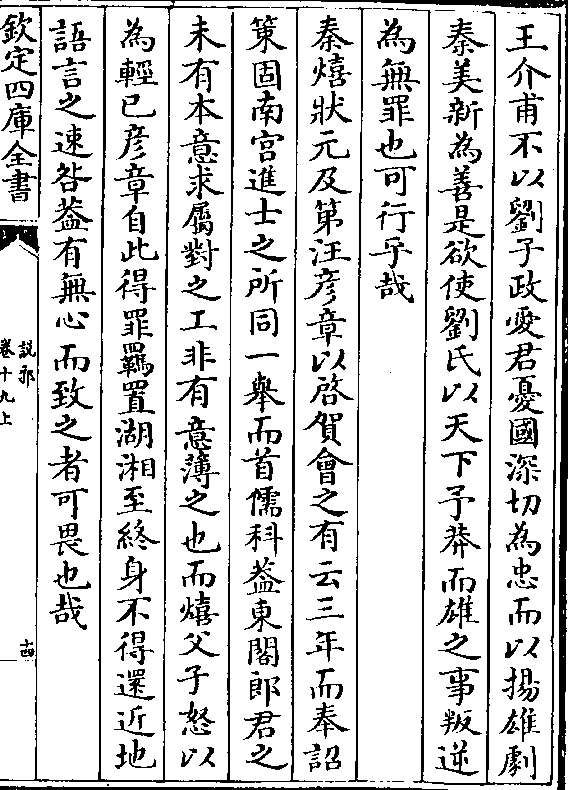 王介甫不以劉子政愛君憂國深切為忠而以揚雄劇
秦美新為善是欲使劉氏以天下予莽而雄之事叛逆
為無罪也可行乎哉
秦熺狀元及第汪彦章以啓賀會之有云三年而奉詔
策固南宫進士之所同一舉而首儒科葢東閣郎君之
未有本意求屬對之工非有意薄之也而熺父子怒以
為輕已彦章自此得罪羈置湖湘至終身不得還近地
語言之速咎葢有無心而致之者可畏也哉
欽定四庫全書
說郛
卷十九上
十四